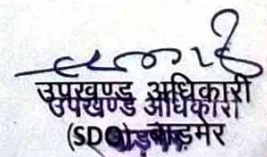 उपखण्ड अधिकारी
उपखण्ड अधिकारी
(SDO) बाड़मेर